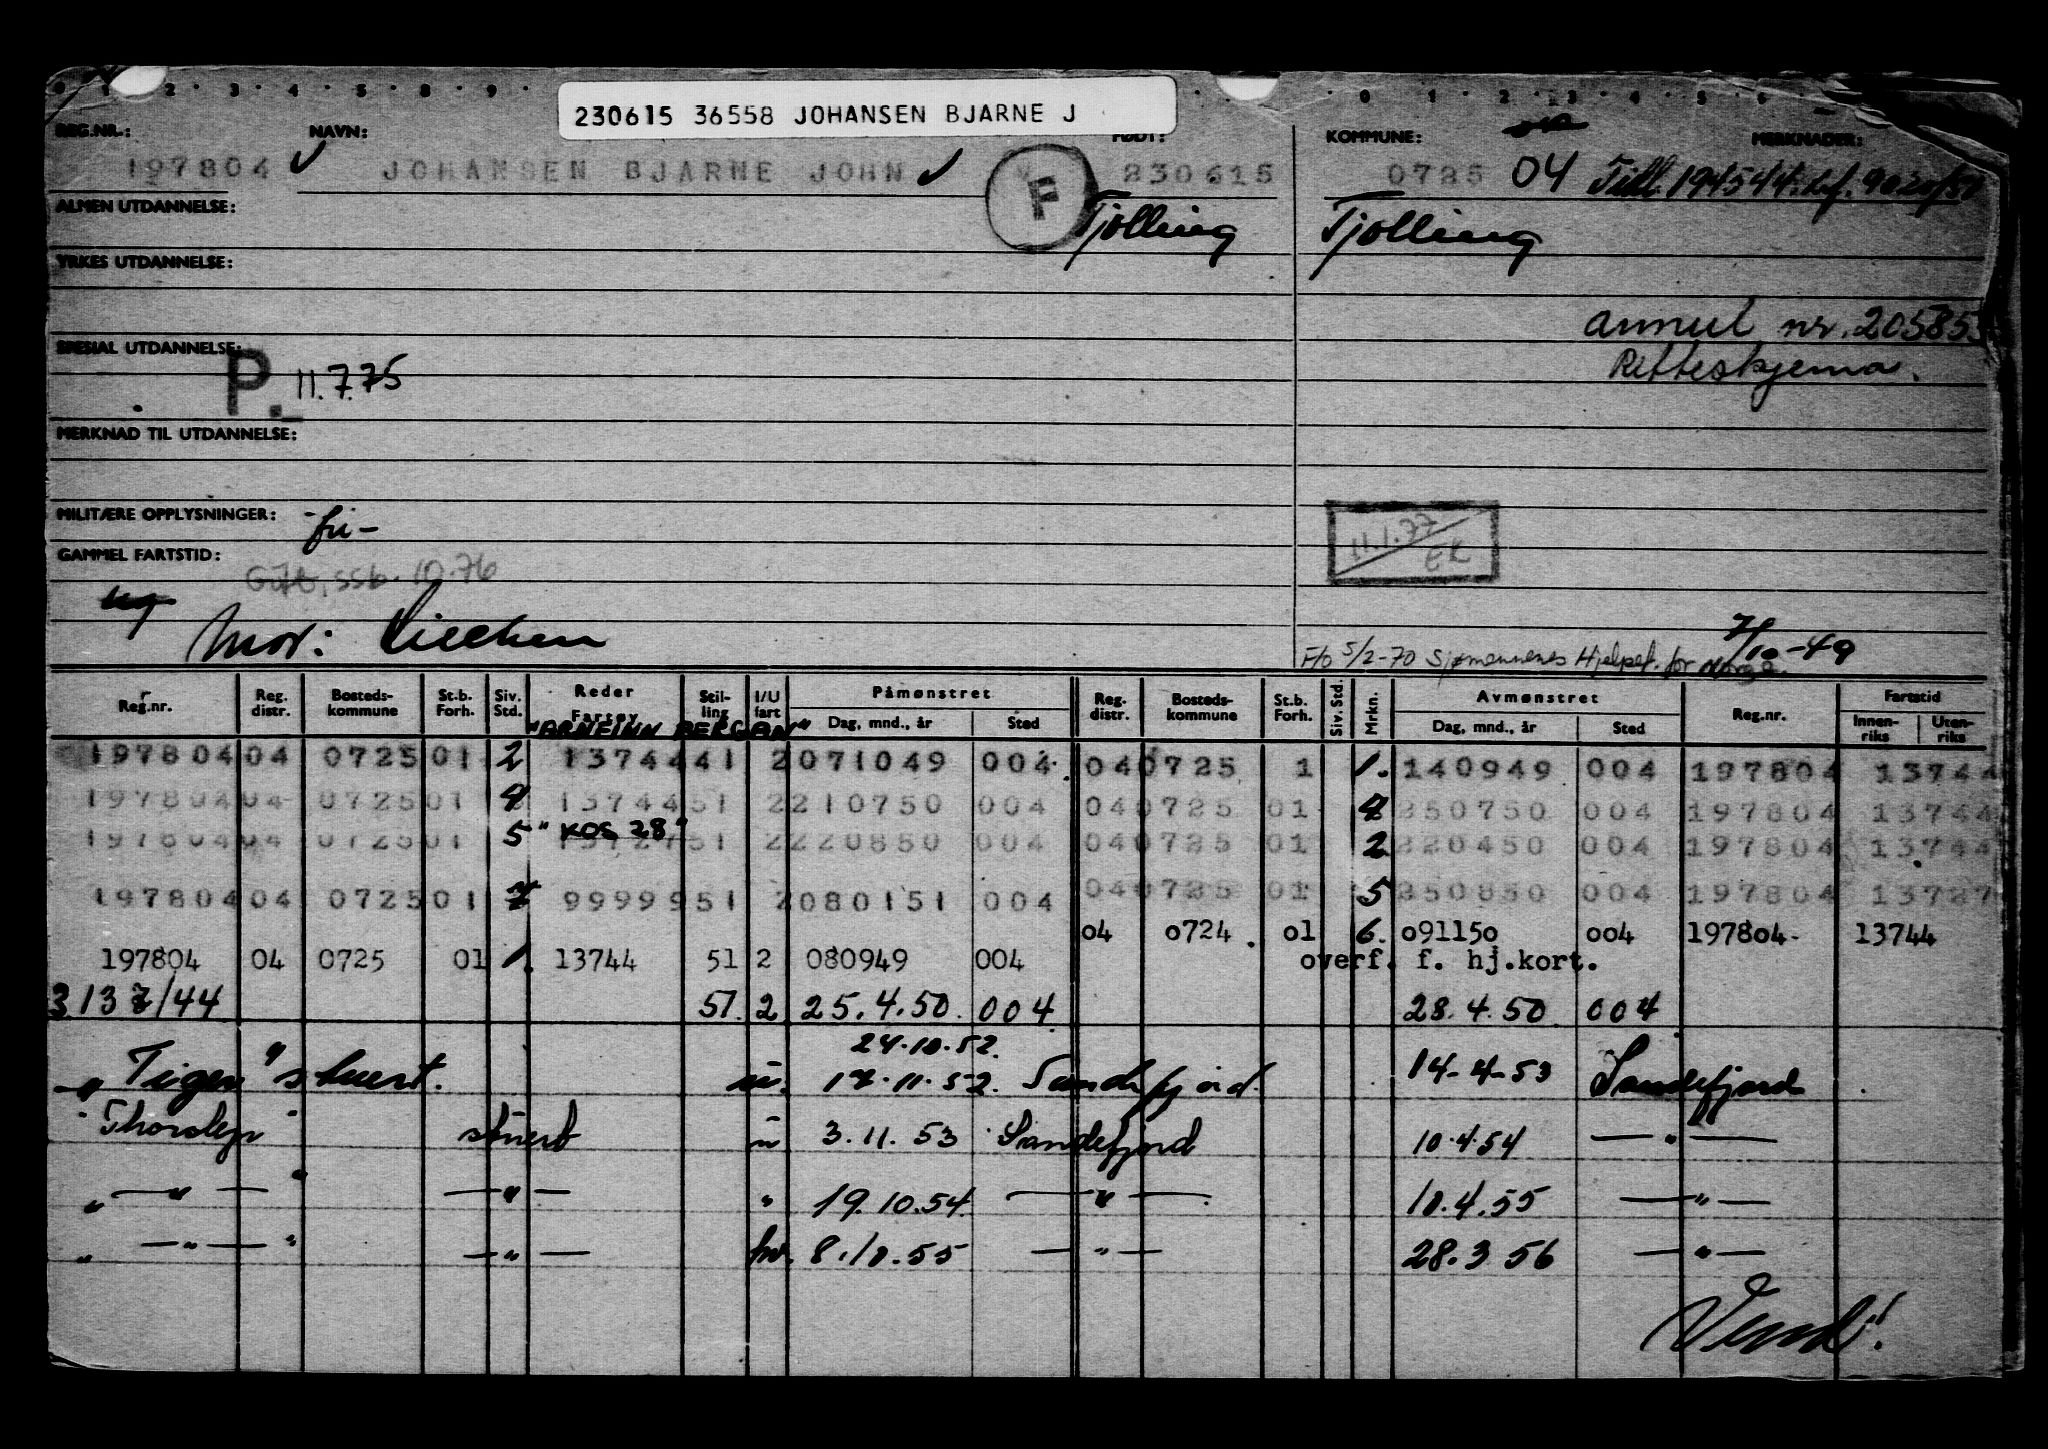 0 1 2 3 4 5 8 9 0 1 2 3 4 5 6
230615 36558 JOHANSEN BJARNE J
REG.NR.: NAVN: FØDT: KOMMUNE: MERKNADER:
197804 JOHANSEN BJARNE JOHN F 230615 0725 04 Till. 194544
Tjølling Tjølling
ALMEN UTDANNELSE:
YRKES UTDANNELSE:
annul nr. 205853
SPESIAL UTDANNELSE:
Retteskjema.
P. 11.7.75
MERKNAD TIL UTDANNELSE:
MILITÆRE OPPLYSNINGER: -fri-
11.1.77
EK
GAMMEL FARTSTID:
Gift, SSB. 10.76
Mor:
7/10-49
F/O 5/2-70 Sjømennenes Hjelpef. for Norge.
Reg.nr. Reg. distr. Bosteds-kommune St.b. Forh. Siv. Std. Reder Fartøy Stil-ling I/U fart Påmønstret Dag, mnd., år Sted Reg. distr. Bosteds-kommune St.b. Forh. Siv. Std. Mrkn. Avmønstret Dag, mnd., år Sted Reg.nr. Fartstid Innen-riks Uten-riks
"ARNFINN BERGAN"
197804 04 0725 01 2 13744 41 2 071049 004 04 0725 1 1. 140949 004 197804 13744
197804 04 0725 01 4 13744 51 2 210750 004 04 0725 01 4 250750 004 197804 13744
"KOS 28"
197804 04 0725 01 5 13727 51 2 220850 004 04 0725 01 2 220450 004 197804 13744
197804 04 0725 01 7 99999 51 2 080151 004 04 0725 01 5 250850 004 197804 13727
04 0724 01 6. 091150 004 197804 13744
197804 04 0725 01 1. 13744 51 2 080949 004 overf. f. hj.kort.
3 137/44 51 2 25.4.50 004 28.4.50 004
24.10.52.
"Tiger" stuert. u. 17.11.52. Sandefjord. 14-4-53 Sandefjord
"Thorslep" stuert u 3.11.53 Sandefjord 10.4.54 — " —
" — " — " — " — " 19.10.54 — " — 10.4.55 — " —
" — " — " — " — hv. 8.10.55 — " — 28.3 56 — " —
Vend!